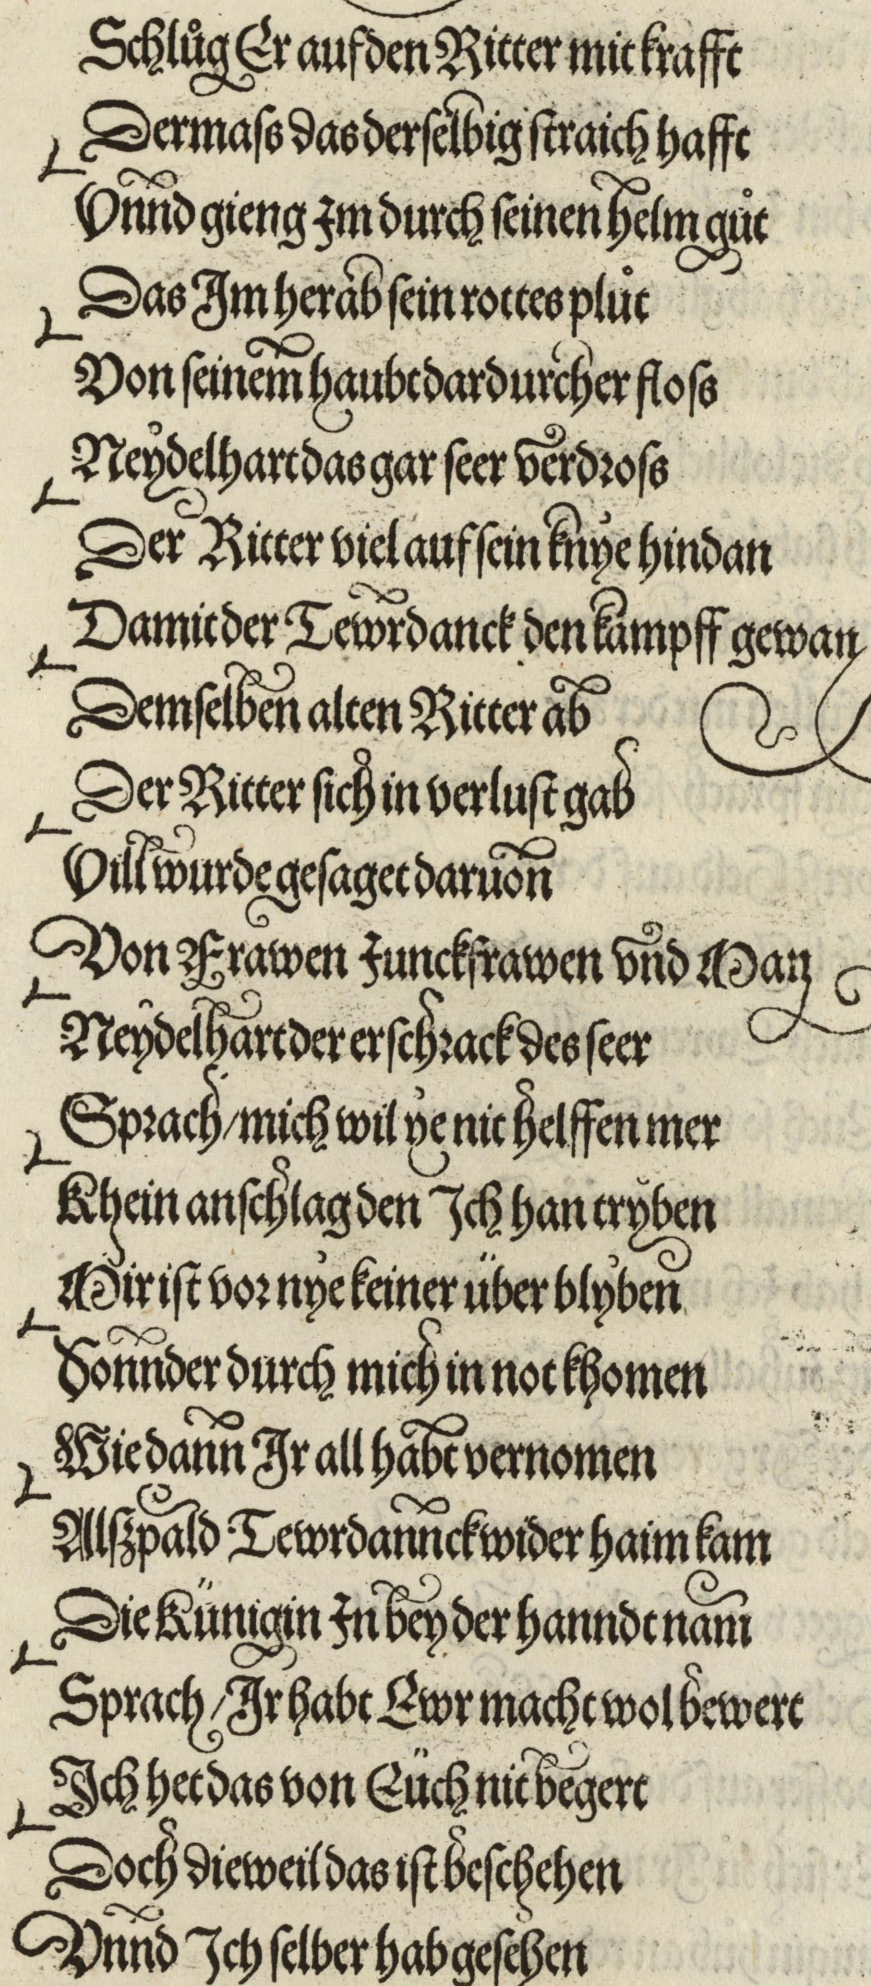 Schlůg Er auf den Ritter mit krafft
Dermass das derselbig straich hafft
Vnnd gieng Im durch seinen helm gůt
Das Im herab sein rottes plůt
Von seinem haubt dardurch er floss
Neydelhart das gar seer verdross
Der Ritter viel auf sein knye hindan
Damit der Tewrdanck den kampff gewan
Demselben alten Ritter ab
Der Ritter sich in verlust gab
Vill wurde gesaget daruon
Von Frawen Junckfrawen vnd Man
Neydelhart der erschrack des seer
Sprach / mich wil ye nit helffen mer
Khein anschlag den Ich han tryben
Mir ist vor nye keiner über blyben
Sonnder durch mich in not khomen
Wie dann Ir all habt vernomen
Alszpald Tewrdannck wider haim kam
Die Künigin In bey der hanndt nam
Sprach / Ir habt Ewr macht wol bewert
Ich het das von Eüch nit begert
Doch dieweil das ist beschehen
Vnnd Ich selber hab gesehen